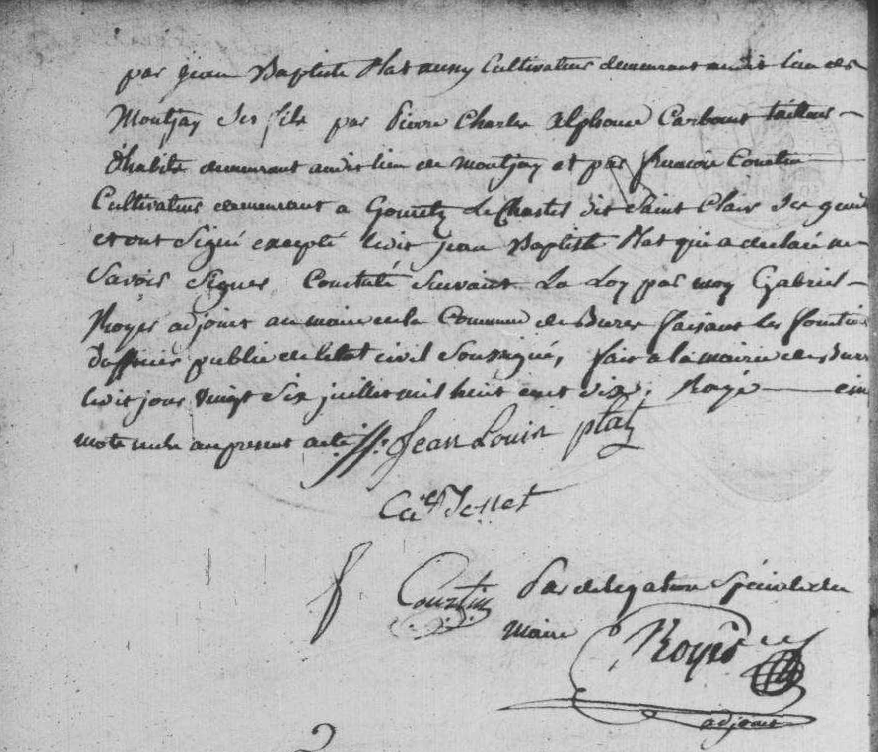 par jean Baptiste Plat aussy Cultivateur demeurant audit lieu de
Montjay Ses fils par Pierre Charles Alphonse tailleur
d'habits demeurant audit lieu de Montjay et par francois Courtin
Cultivateur demeurant a Gometz Le Chastel dit Saint Clair Ses
et ont Signé excepté ledit jean Baptiste Plat qui a declaré ne
Savoir Signer, Constaté Suivant La Loy par moy Gabriel
Royer adjoint au maire de la Commune de Bures faisant les fonctions
Dofficier public de letat civil Soussigné, fait a la mairie de Bures
ledit jour vingt Six juillet mil huit cent dix, Rayé cinq
mots nuls au present acte Jean Louis plat
Courtin Par delegation Spéciale du
Maire Royer
adjoint